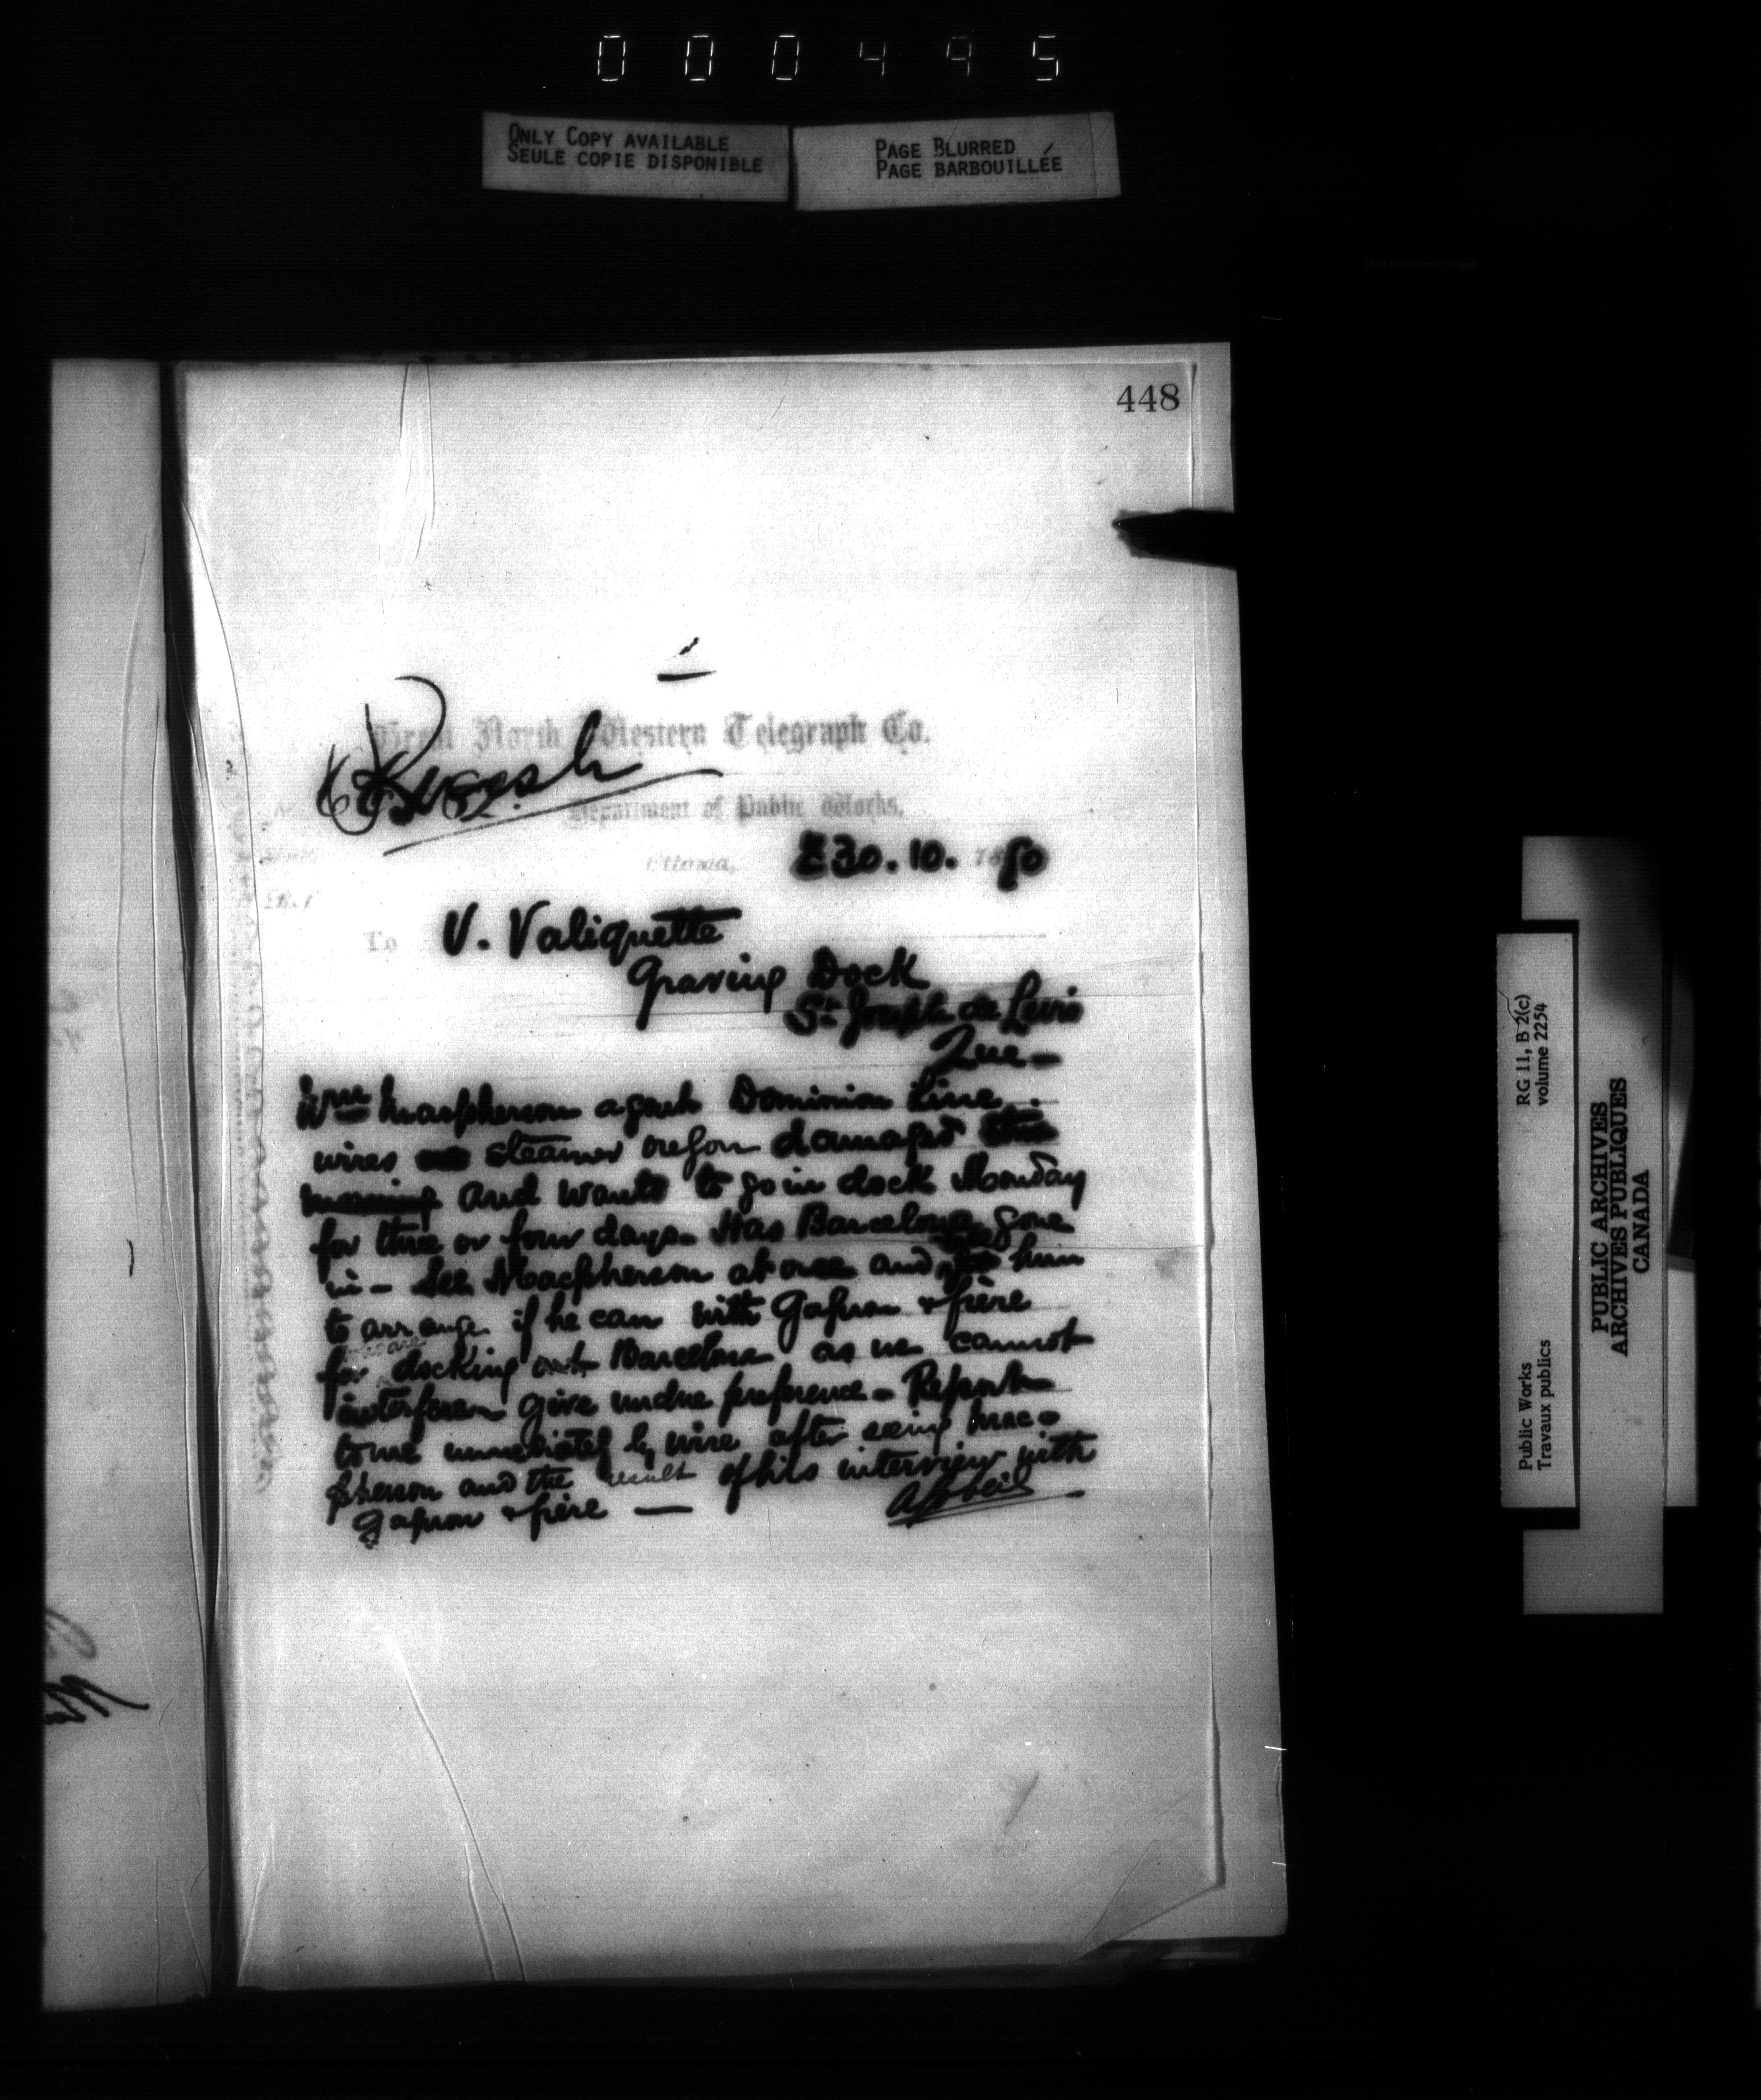 000495
ONLY COPY AVAILABLE
SEULE COPIE DISPONIBLE
PAGE BLURRED
PAGE BARBOUILLÉE
448
Great North Western Telegraph Co.
Department of Public Works,
Ottawa, 30.10. 1890
To V. Valiquette
Graving Dock
St. Joseph de Levis
Que-
Wm Macpherson agent Dominion Line
wires steamer oregon damaged
and wants to go in dock Monday
for three or four days. Has Barcelona gone
in - See Macpherson at once and him
to arrange if he can with Gagnon & frère
for docking Barcelona as we cannot
interfere give undue preference - Report
to me immediately by wire after seeing Mac-
pherson and the result of his interview with
Gagnon & frère — A Gobeil
Public Works
Travaux publics
RG 11, B 2(c)
volume 2254
PUBLIC ARCHIVES
ARCHIVES PUBLIQUES
CANADA